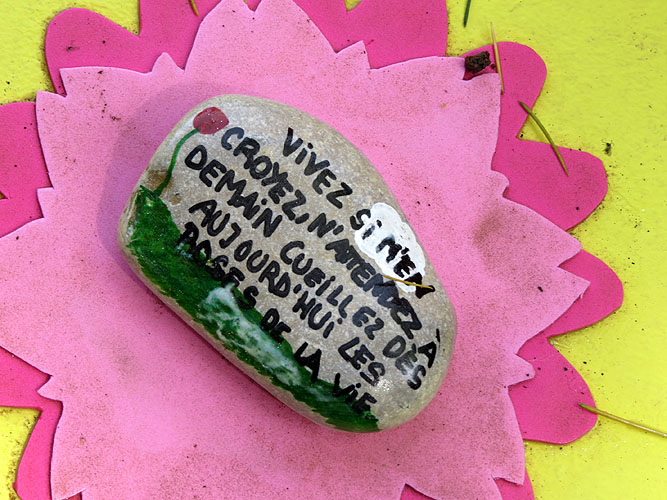 VIVEZ Si M'EN
CROYEZ, N'ATTENDEZ À
DEMAIN CUEILLEZ DÈS
AUJOURD'HUI LES
ROSES DE LA ViE